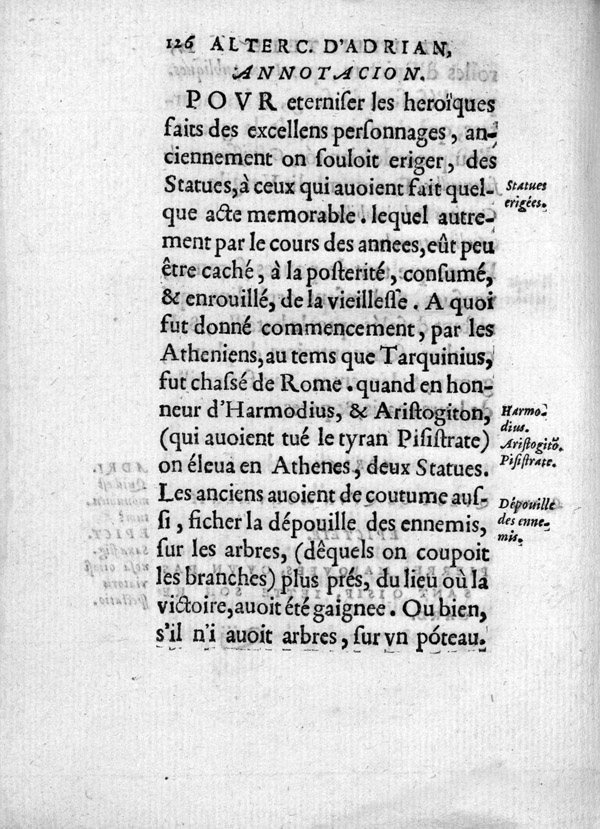 126 ALTERC. D'ADRIAN,
ANNOTACION.
POVR eterniſer les heroïques
faits des excellens perſonnages, an-
ciennement on ſouloit eriger, des
Statues, à ceux qui auoient fait quel-
que acte memorable. lequel autre-
ment par le cours des annees, eût peu
être caché, à la poſterité, conſumé,
& enrouillé, de la vieilleſſe. A quoi
fut donné commencement, par les
Atheniens, au tems que Tarquinius,
fut chaſſé de Rome. quand en hon-
neur d'Harmodius, & Ariſtogiton,
(qui auoient tué le tyran Piſiſtrate)
on éleua en Athenes, deux Statues.
Les anciens auoient de coutume auſ-
ſi, ficher la dépouille des ennemis,
ſur les arbres, (dêquels on coupoit
les branches) plus prés, du lieu où la
victoire, auoit été gaignee. Ou bien,
s'il n'i auoit arbres, ſur vn póteau.
Statues
erigées.
Harmo-
dius.
Ariſtogitõ.
Piſiſtrate.
Dépouille
des enne-
mis.